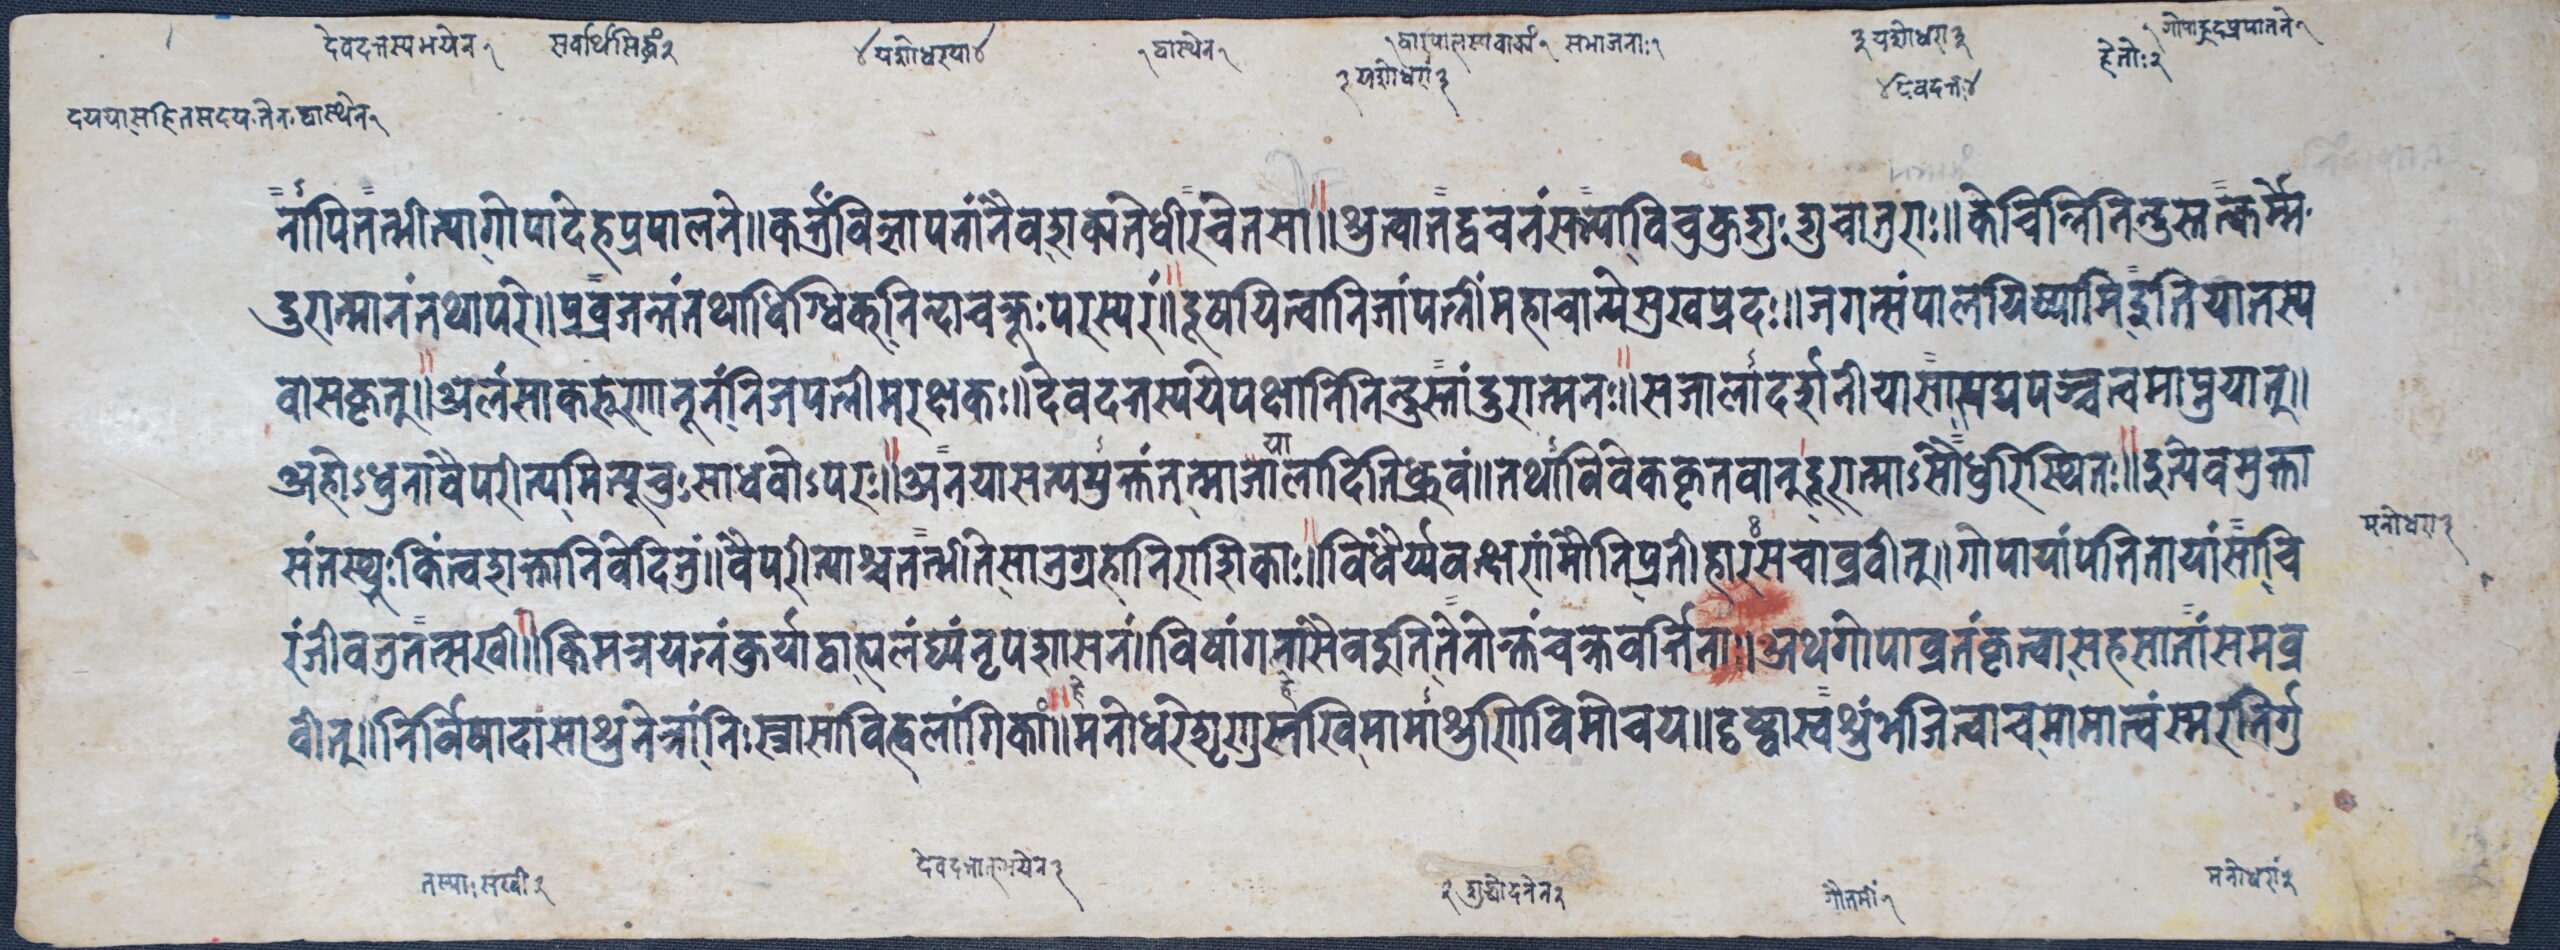 देवदत्तस्यभयेन१ सर्वार्थसिद्धं२ ४यशोधरया४ १द्वास्थेन१ १द्वारपालस्यवाक्यं१ सभाजनाः१ ३यशोधरा३ १गोपाहृदप्रपातने१
३यशोधरां३ ४देवदत्तः४ हेतोः२
दययासहितसदय तेन द्वास्थेन१
नापितद्भीत्यागोपादेहप्रपालने॥कर्त्तुंविज्ञापनांनैवशक्यतेधीरचेतसा॥श्रुत्वातद्वचनंसभ्याविचुक्रुशुःशुचातुराः॥केचिन्निनिन्दुस्तत्कर्म्म
दुरात्मानंतथापरे॥प्रव्रजन्तंतथाधिग्धिक्निन्दाचक्रूःपरस्परं॥दूषयित्वानिजांपत्नींमहाचान्येसुखप्रदः॥जगत्संपालयिष्यामिइतियातस्य
वासकृत्॥अलंसाकरूणानूनंनिजपत्नीमरक्षकः॥देवदत्तस्ययेपक्षानिनिन्दुस्तांदुरात्मनः॥सजालादर्शनीयासाप्राप्यपञ्चत्वमाप्नुयात्॥
अहोऽधुनावैपरीत्यमित्यूचुःसाधवोऽपरः॥अनयासत्यमुक्तंतत्माजायालादितिध्रुवं॥तथाविवेककृतवान्दूरात्माऽसौधुरिस्थितः॥इत्येवमुक्ता
संतस्थुःकिंत्वशक्तानिवेदितुं॥वैपरीत्याश्चतद्भीतेसानुग्रहानिराशिकाः॥विधैर्य्यवत्क्षरांमौनिप्रतीहारसचाव्रवीत्॥गोपायांपतितायांसाचि मनोधरा२
रंजीवतुतत्सखी॥किमत्रयत्नंकुर्याद्वाह्यलंघ्यंनृपशासनं॥विषांगनांसैवइतितेनोक्तंचक्रवर्त्तिना॥अथगोपाव्रतंकृत्वासहसातांसमव्र
वीत्॥निर्विषादासाश्रुनेत्रांनिःस्वासाविह्वलांगिकां॥हेमनोधरेशृणुहेसखिमामाश्रुणिविमोचय॥दृष्ट्वास्वश्रुंभजित्वाचमामात्वंस्मरनिर्गु
तस्याःसखी२ देवदत्तात्भयेन३ २शुद्धोदनेन२ गौतमीं१ मनोधरां२